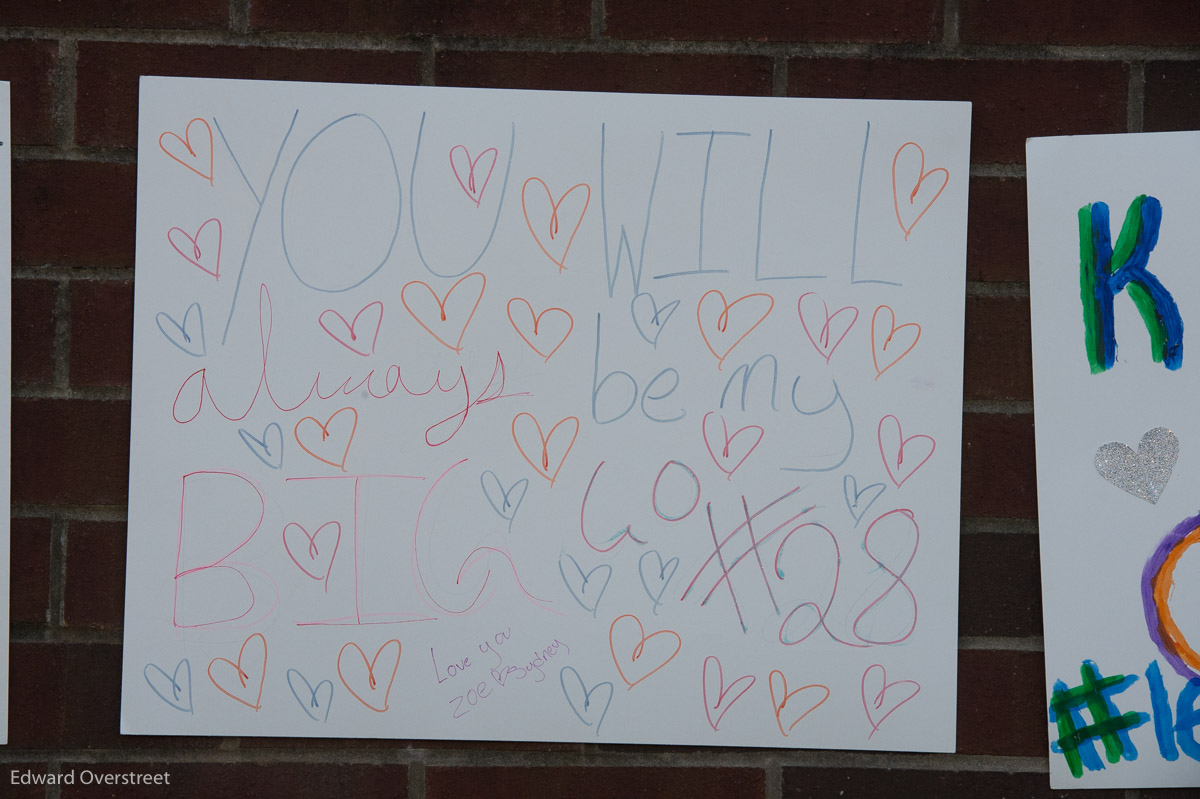 YOU WILL
always be my
BIG GO #28
Love you
Zoe Sydney
K
#16
Edward Overstreet